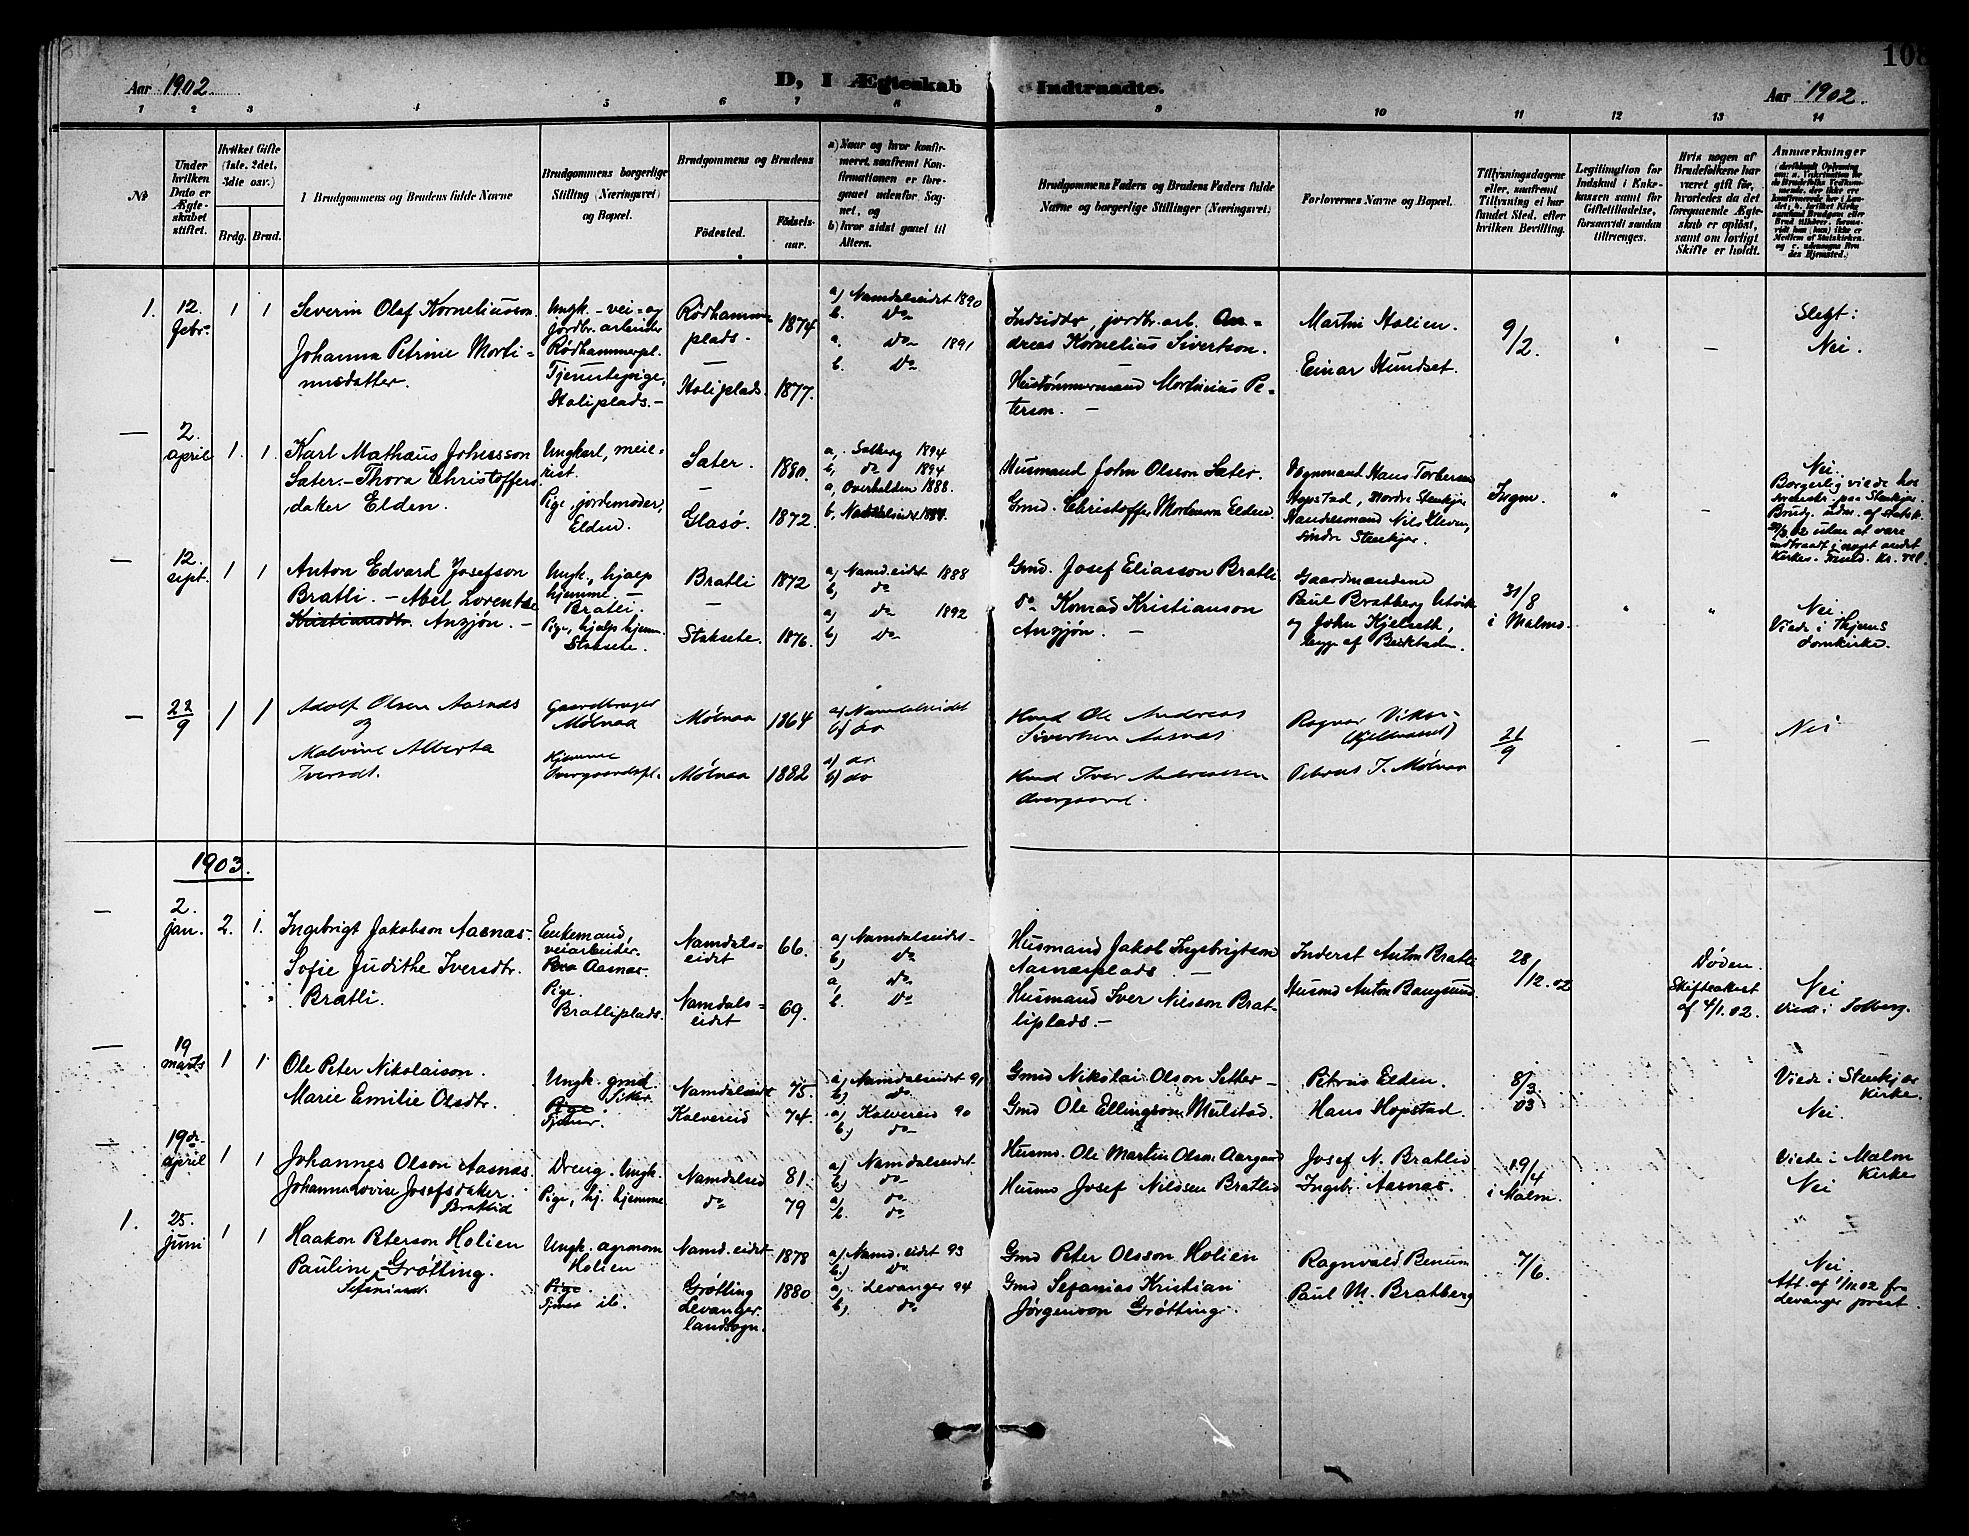 108
Aar 1902
D, I Ægteskab Indtraadte.
Aar 1902.
1 2 3 4 5 6 7 8 9 10 11 12 13 14
No
Under hvilken Dato er Ægteskabet stiftet.
Hvilket Gifte (1ste, 2det, 3die osv.)
Brdg. Brud.
I Brudgommens og Brudens fulde Navne
Brudgommens borgerlige Stilling (Næringsvei) og Bopæl.
Brudgommens og Brudens
Fødested.
Fødselsaar.
a) Naar og hvor konfirmeret, saafremt Konfirmationen er foregaaet udenfor Sognet, og
b) hvor sidst gaaet til Alters.
Brudgommens Faders og Brudens Faders fulde Navne og borgerlige Stillinger (Næringsvei)
Forlovernes Navne og Bopæl.
Tillysningsdagene eller, saafremt Tillysning ei har fundet Sted, efter hvilken Bevilling.
Legitimation for Indskud i Enkekassen samt for Giftetilladelse, forsaavidt saadan tiltrænges.
Hvis nogen af Brudefolkene har været gift før, hvorledes da det foregaaende Ægteskab er opløst, samt om lovligt Skifte er holdt.
Anmærkninger
1. 12. febr. 1 1
Severin Olaf Korneliusson.
Johanna Petrine Mortinusdatter.
Ungk. - vei- og jordbr. arbeider Rødhammerpl.
Tjenestepige, Holiplads. -
Rødhammerplads. 1874
Holiplads. 1877.
a) Namdalseidet 1890
b. do
a. do 1891
b. do
Indsidder, jordbr. arb. Andreas Kornelius Sivertson.
Hustømmermand Mortinius Peterson. -
Martin Holien.
Einar Hundset.
9/2.
Slegt:
Nei.
- 2. april 1. 1.
Karl Mathæus Johnsson Sæter. - Thora Christoffersdatter Elden.
Ungkarl, meierist.
Pige, jordemoder, Elden.
Sæter. 1880.
Glasø. 1872.
a, Solberg 1894
b, do 1894
a, Overhalden 1888.
b, Namdalseidet
Husmand John Olsson Sæter.
Gmd. Christoffer Mortenson Elden.
Hans Torbersen
Nordre Stenkjær
Handelsmand Nils
søndre Stenkjær.
Ingen.
Nei.
Borgerlig viede hos
paa Stenkjær.
Brudg. udm. af statsk.
uden at være indtraadt i noget andet Kirkes.
- 12. sept. 1 1
Anton Edvard Josefson Bratli. - Abel Lorentze Kristiansdtr. Anzjøn. -
Ungk., hjælp hjemme. - Bratli.
Pige, hjælp hjem. Staksete.
Bratli 1872
Staksete. 1876.
a) Namd.eidet 1888
b) do
a) do 1892
b) do
Gmd. Josef Eliasson Bratli
do Konrad Kristianson Anzjøn. -
Gaardmændene Paul Bratberg Utvik og John Kjelseth,
31/8 i Malmo.
Nei.
Viede i Thjems domkirke.
- 22/9 1 1
Adolf Olsen Aasnæs
og
Malvine Alberta Iversdt.
Gaardbruger Mølnaa
Hjemme Overgaardspl.
Mølnaa 1864
Mølnaa 1882
a) Namdalseidet
b) do
a) do
b) do
Hmd Ole Andreas Sivertsen Aasnæs
Hmd Iver Andreassen Overgaard.
Ragnar Viker
Petrus I. Mølnaa
21/9
Nei
1903.
- 2. jan. 2. 1.
Ingebrigt Jakobson Aasnæs.
Sofie Judithe Iversdtr. Bratli.
Enkemand, veiarbeider. Aasnæs.
Pige. Bratliplads.
Namdalseidet 66.
Namdalseidet 69.
a) Namdalseidet
b) do
a, do
b. do
Husmand Jakob Ingebrigtson Aasnæsplads -
Husmand Iver Nilsson Bratliplads. -
Inderst Anton Bratli
Husmd Anton Bangsund.
28/12.02
Døden.
Skifteakest af 4/1.02.
Nei
Viede i Solberg.
- 19 marts 1 1.
Ole Peter Nikolaison.
Marie Emilie Olsdtr.
Ungk. gmd
Pige.
Tjener.
Namdalseidet 75.
Kalvereid 74.
a) Namdalseidet 91
b) do
a) Kalvereid 90
b) do
Gmd Nikolai Olson Setter -
Gmd Ole Ellingson Mulstad.
Petrus Elden.
Hans Hopstad.
8/3 03
Viede i Stenkjær Kirke.
Nei.
- 19de april 1 1
Johannes Olson Aasnæs.
Johanna Lovise Josefsdatter Bratlid
Dreng. Ungk.
Pige, hj. hjemme.
Namdalseid 81.
do 79
a) Namdalseidet
b) do
a) do
b. do
Husmd. Ole Martin Olson Aargaard
Husmd Josef Nilssen Bratlid
Josef N. Bratlid
Ingebr. Aasnæs.
19/4 i Malm.
Viede i Malm Kirke
Nei
1. 25. juni 1 1
Haakon Peterson Holien
Pauline Grøtting.
Ungk. agronom Holien
Pige.
Tjener ib.
Namd.eidet 1878
Grøtting Levanger landsogn. 1880
a) Namd.eidet 93
b) do
a) Levanger 94
b) do
Gmd Peter Olsson Holien
Gmd Sefanias Kristian Jørgenson Grøtting
Ragnvald Benum
Paul M. Bratberg
7/6.
Nei.
Att. af 1/11.02 fra Levanger prest.